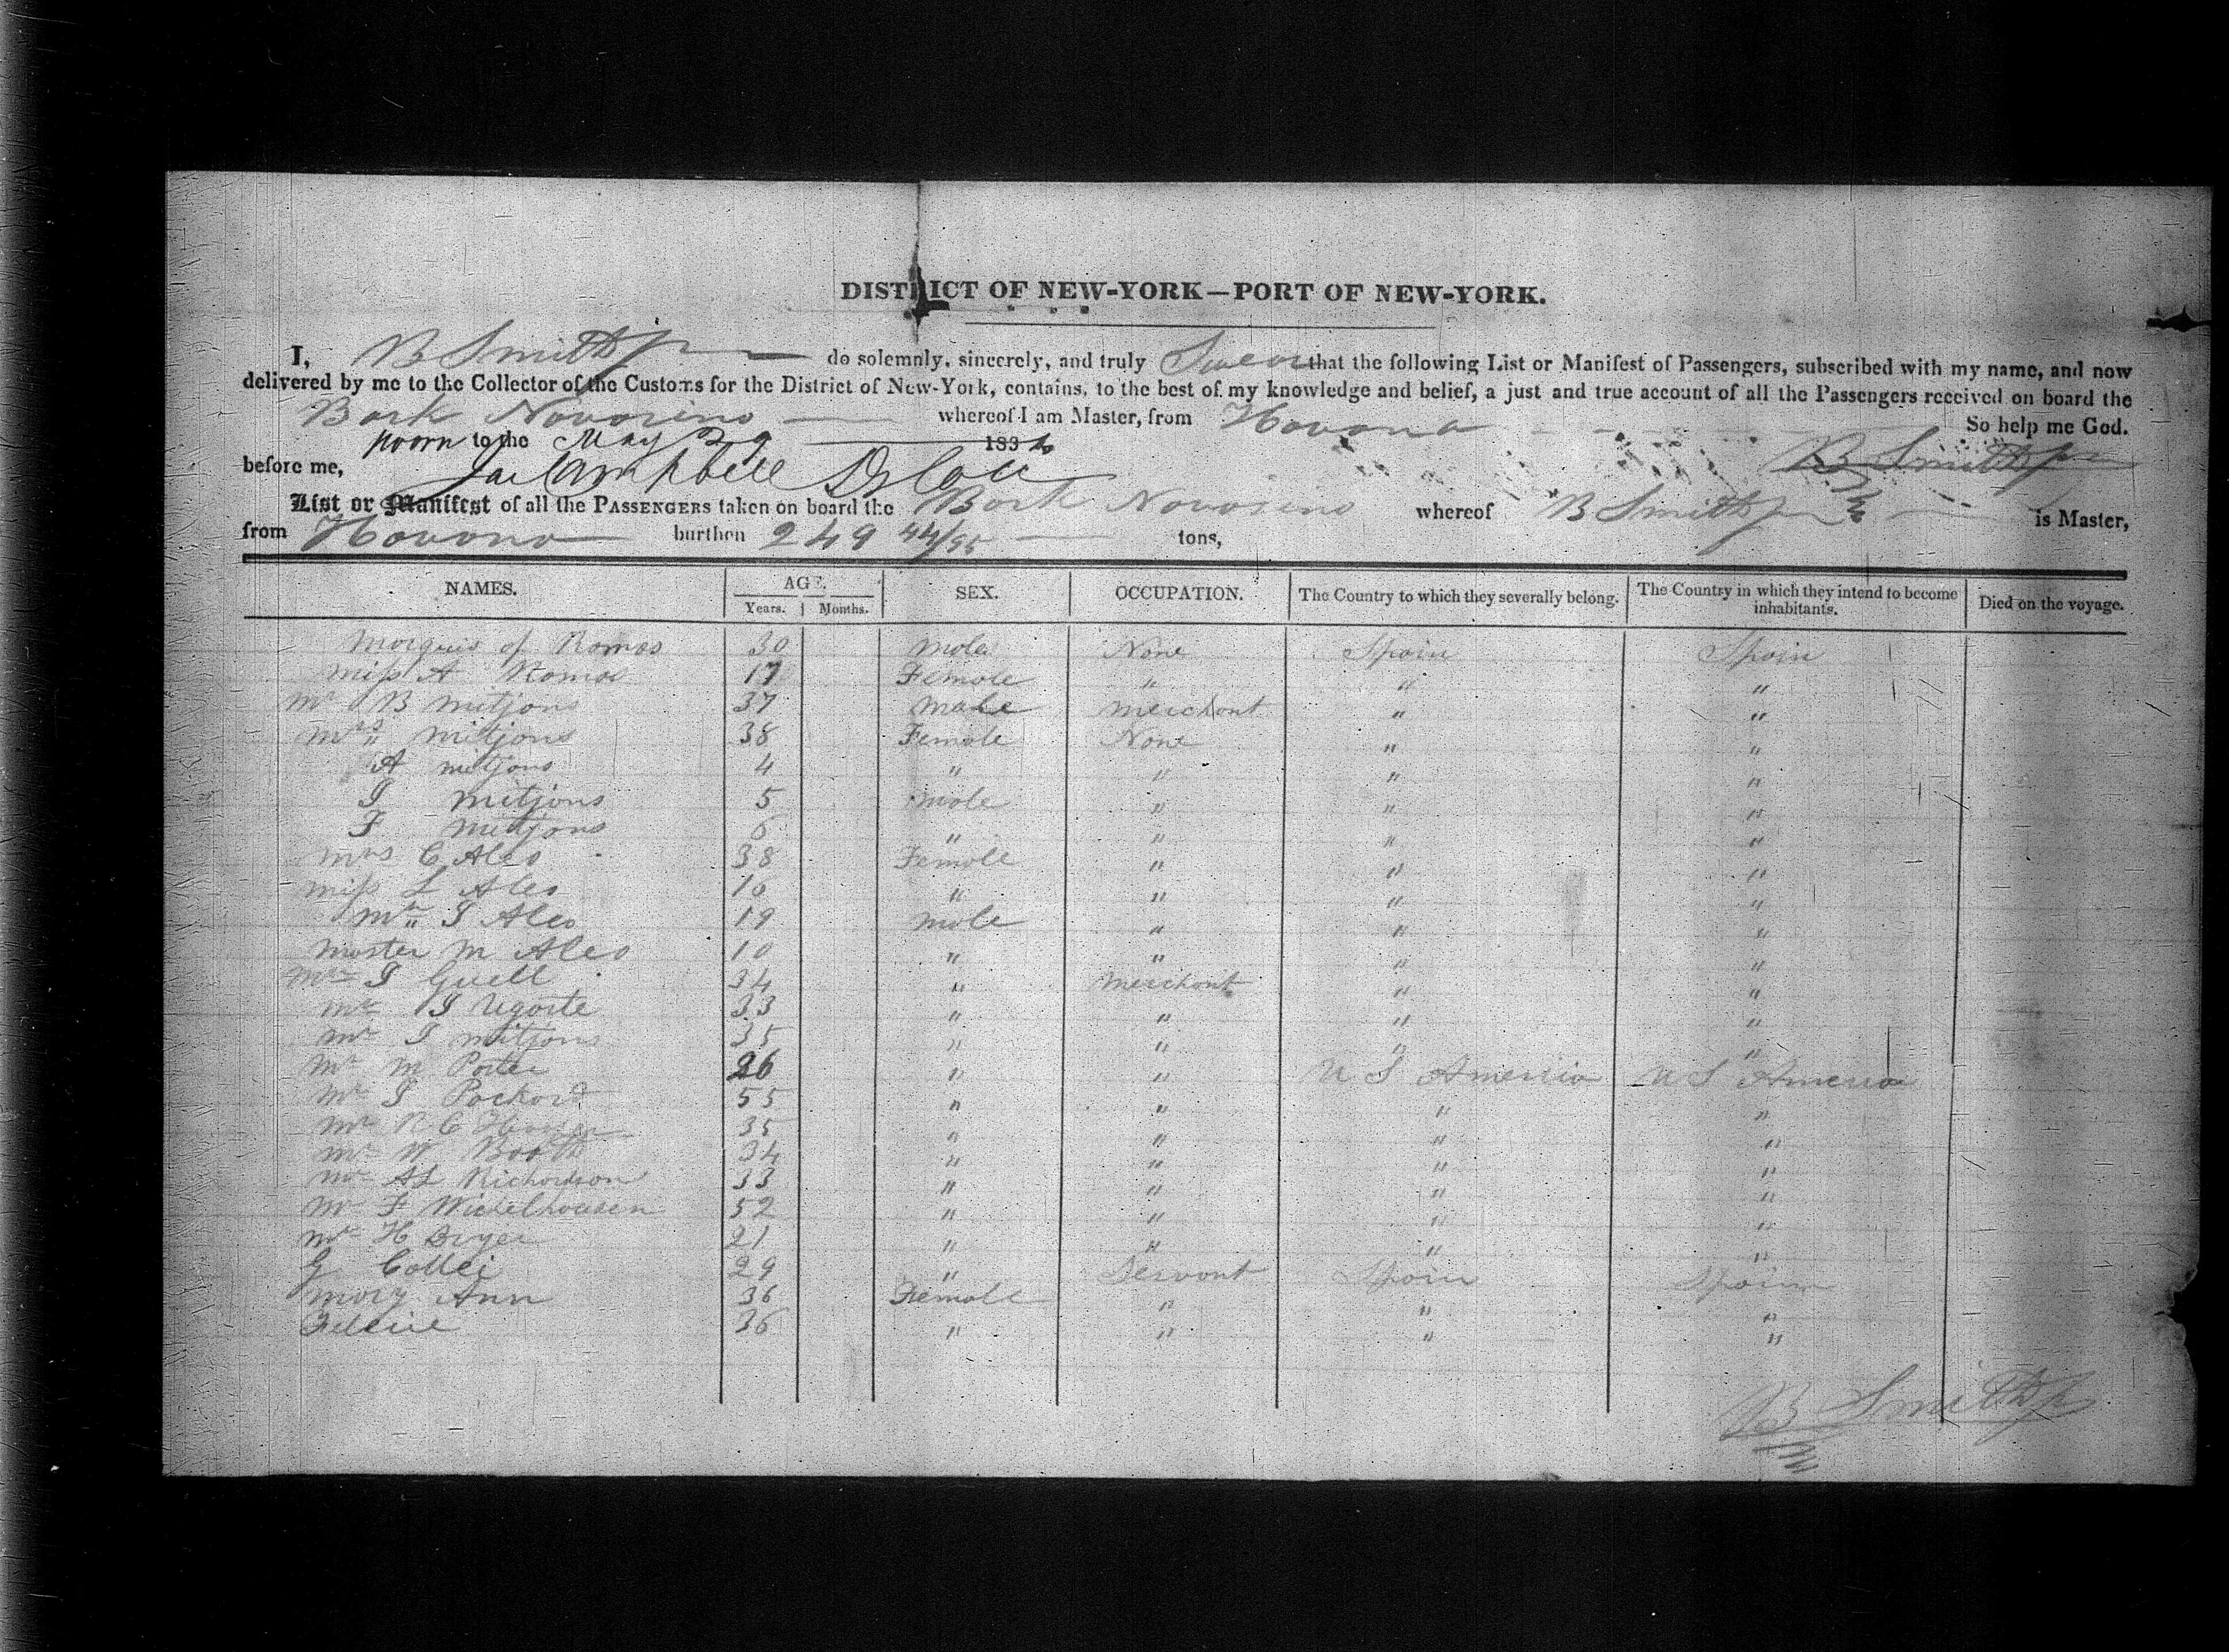 DISTRICT OF NEW-YORK—PORT OF NEW-YORK.
I, B Smith jr do solemnly, sincerely, and truly Swear that the following List or Manifest of Passengers, subscribed with my name, and now
delivered by me to the Collector of the Customs for the District of New-York, contains, to the best of my knowledge and belief, a just and true account of all the Passengers received on board the
Bark Navarino whereof I am Master, from Havana So help me God.
sworn to the May 29 183 B Smith jr
before me, Campbell
List or Manifest of all the PASSENGERS taken on board the Bark Navarino whereof B Smith jr is Master,
from Havana burthen 249 44/95 tons,
NAMES. AGE. Years. Months. SEX. OCCUPATION. The Country to which they severally belong. The Country in which they intend to become inhabitants. Died on the voyage.
Marquis of Ramos 30 Male None Spain Spain
miss A Ramos 17 Female " " "
mr B mitjans 37 Male merchant " "
mrs " mitjans 38 Female None " "
A mitjans 4 " " " "
J mitjans 5 male " " "
F mitjans 6 " " " "
mrs C Aleo 38 Female " " "
miss L Aleo 16 " " " "
mr J Aleo 19 male " " "
master M Aleo 10 " " " "
mr J Guell 34 " merchant " "
mr J Ugarte 33 " " " "
mr J mitjans 35 " " " "
mr M Porter 26 " " U S America U S America
mr J Packard 55 " " " "
mr R C 35 " " " "
mr W Booth 34 " " " "
mr AL Richardson 33 " " " "
mr F Wichelhausen 52 " " " "
mr H Dryer 21 " " " "
G Collei 29 " Servant Spain Spain
mary Ann 36 Female " " "
36 " " " "
B Smith jr